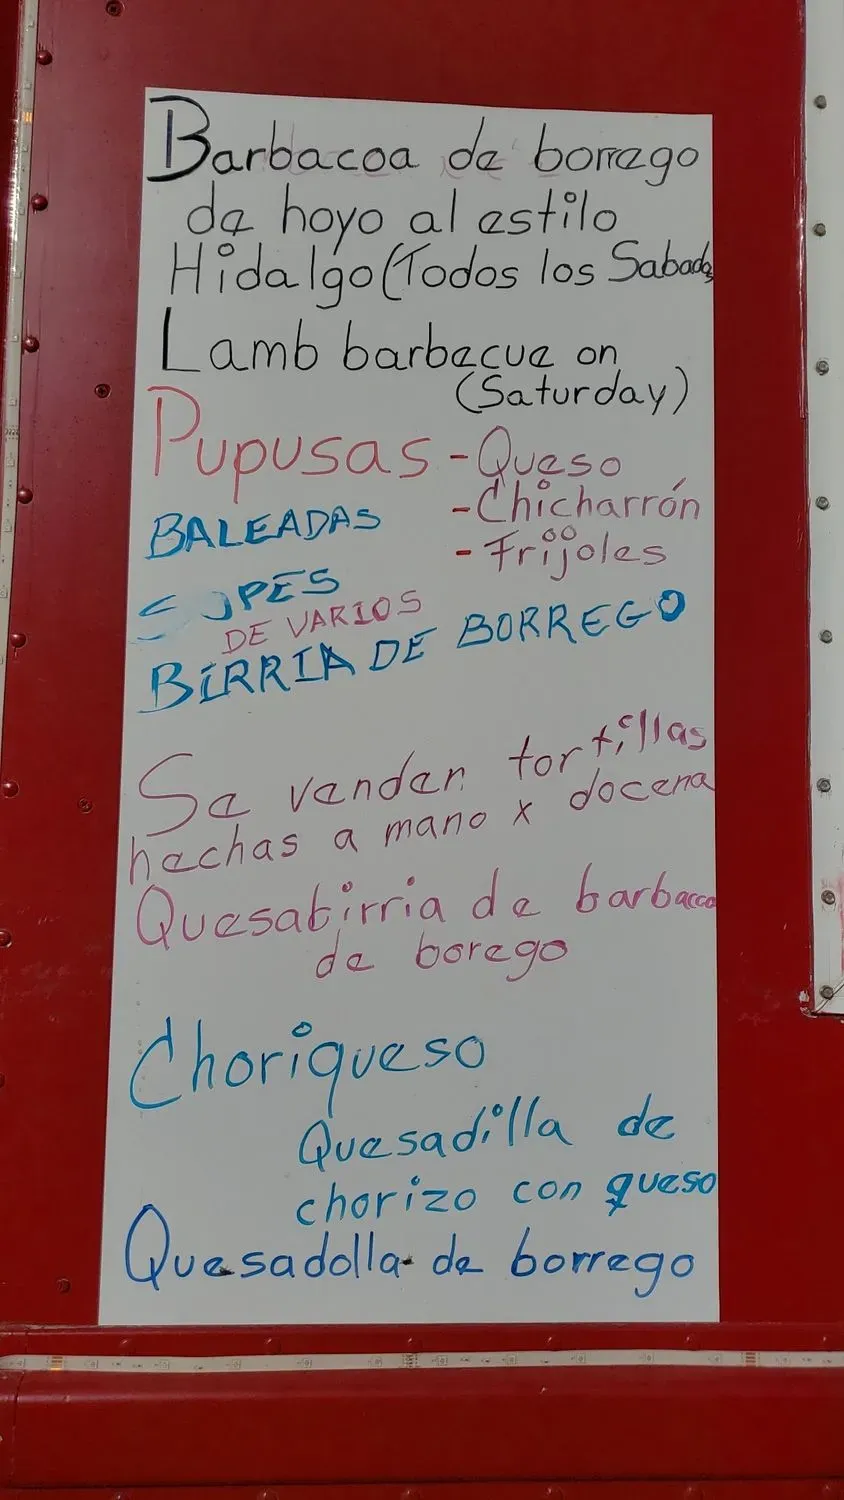 Barbacoa de borrego
de hoyo al estilo
Hidalgo (Todos los Sabados
Lamb barbecue on
(Saturday)
Pupusas - Queso
- Chicharrón
BALEADAS
- Frijoles
SOPES
DE VARIOS
BIRRIA DE BORREGO
Se venden tortillas
hechas a mano x docena
Quesabirria de barbacoa
de borego
Choriqueso
Quesadilla de
chorizo con queso
Quesadolla de borrego